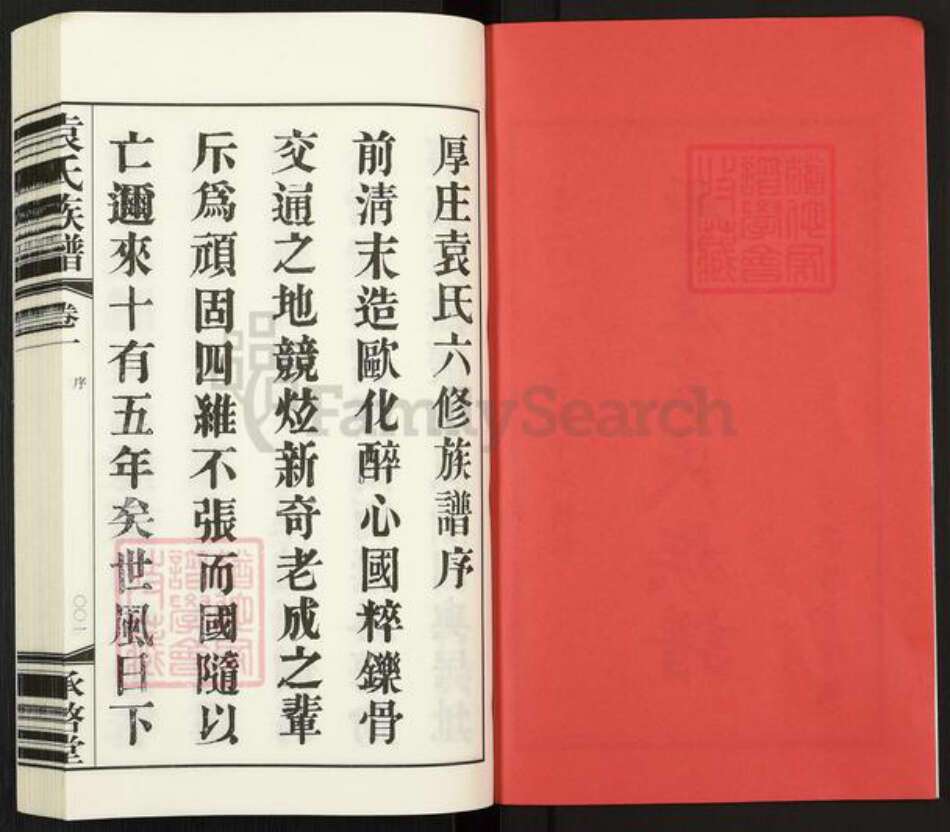 厚庄袁氏六修族譜序
前清末造歐化醉心國粹鑠骨
交通之地競炫新奇老成之輩
斥爲頑固四維不張而國隨以
亡邇來十有五年矣世風日下
袁氏族譜
卷一
序
〇〇一
承啓堂
FamilySearch